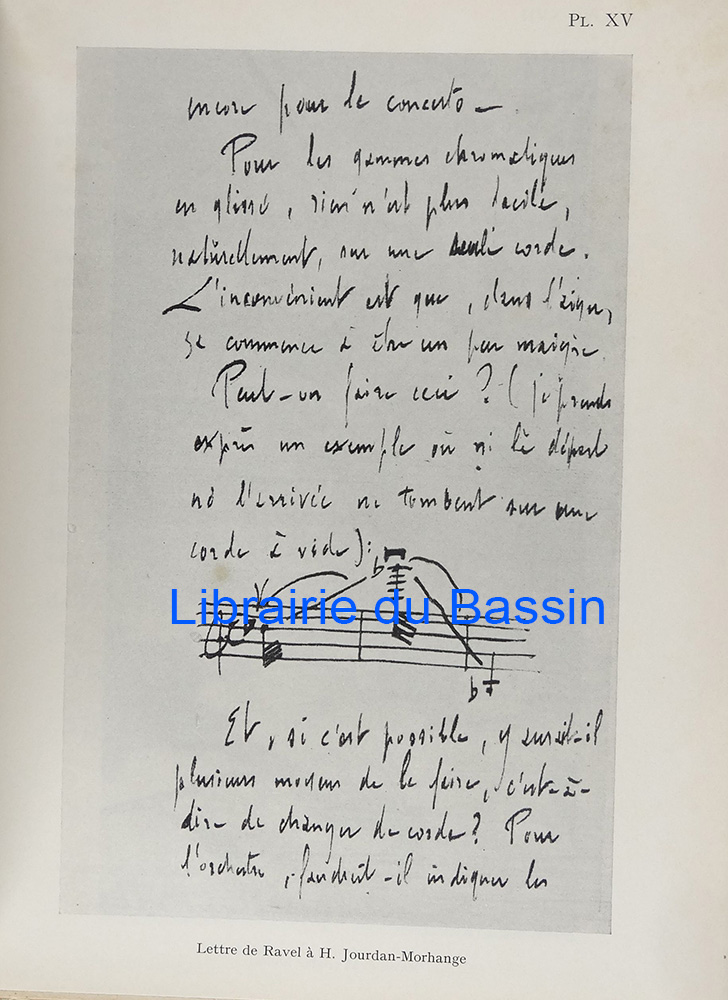 PL. XV
encore pour le concerto —
Pour les gammes chromatiques
en glissé, rien n'est plus facile,
naturellement, sur une seule corde.
L'inconvénient est que, dans l'aigu,
ça commence à être un peu maigre.
Peut-on faire ceci ? (je prends
exprès un exemple où ni le départ
ni l'arrivée ne tombent sur une
corde à vide):
Librairie du Bassin
Et, si c'est possible, y aurait-il
plusieurs moyens de le faire, c'est-à-
dire de changer de corde? Pour
l'orchestre, faudrait-il indiquer les
Lettre de Ravel à H. Jourdan-Morhange